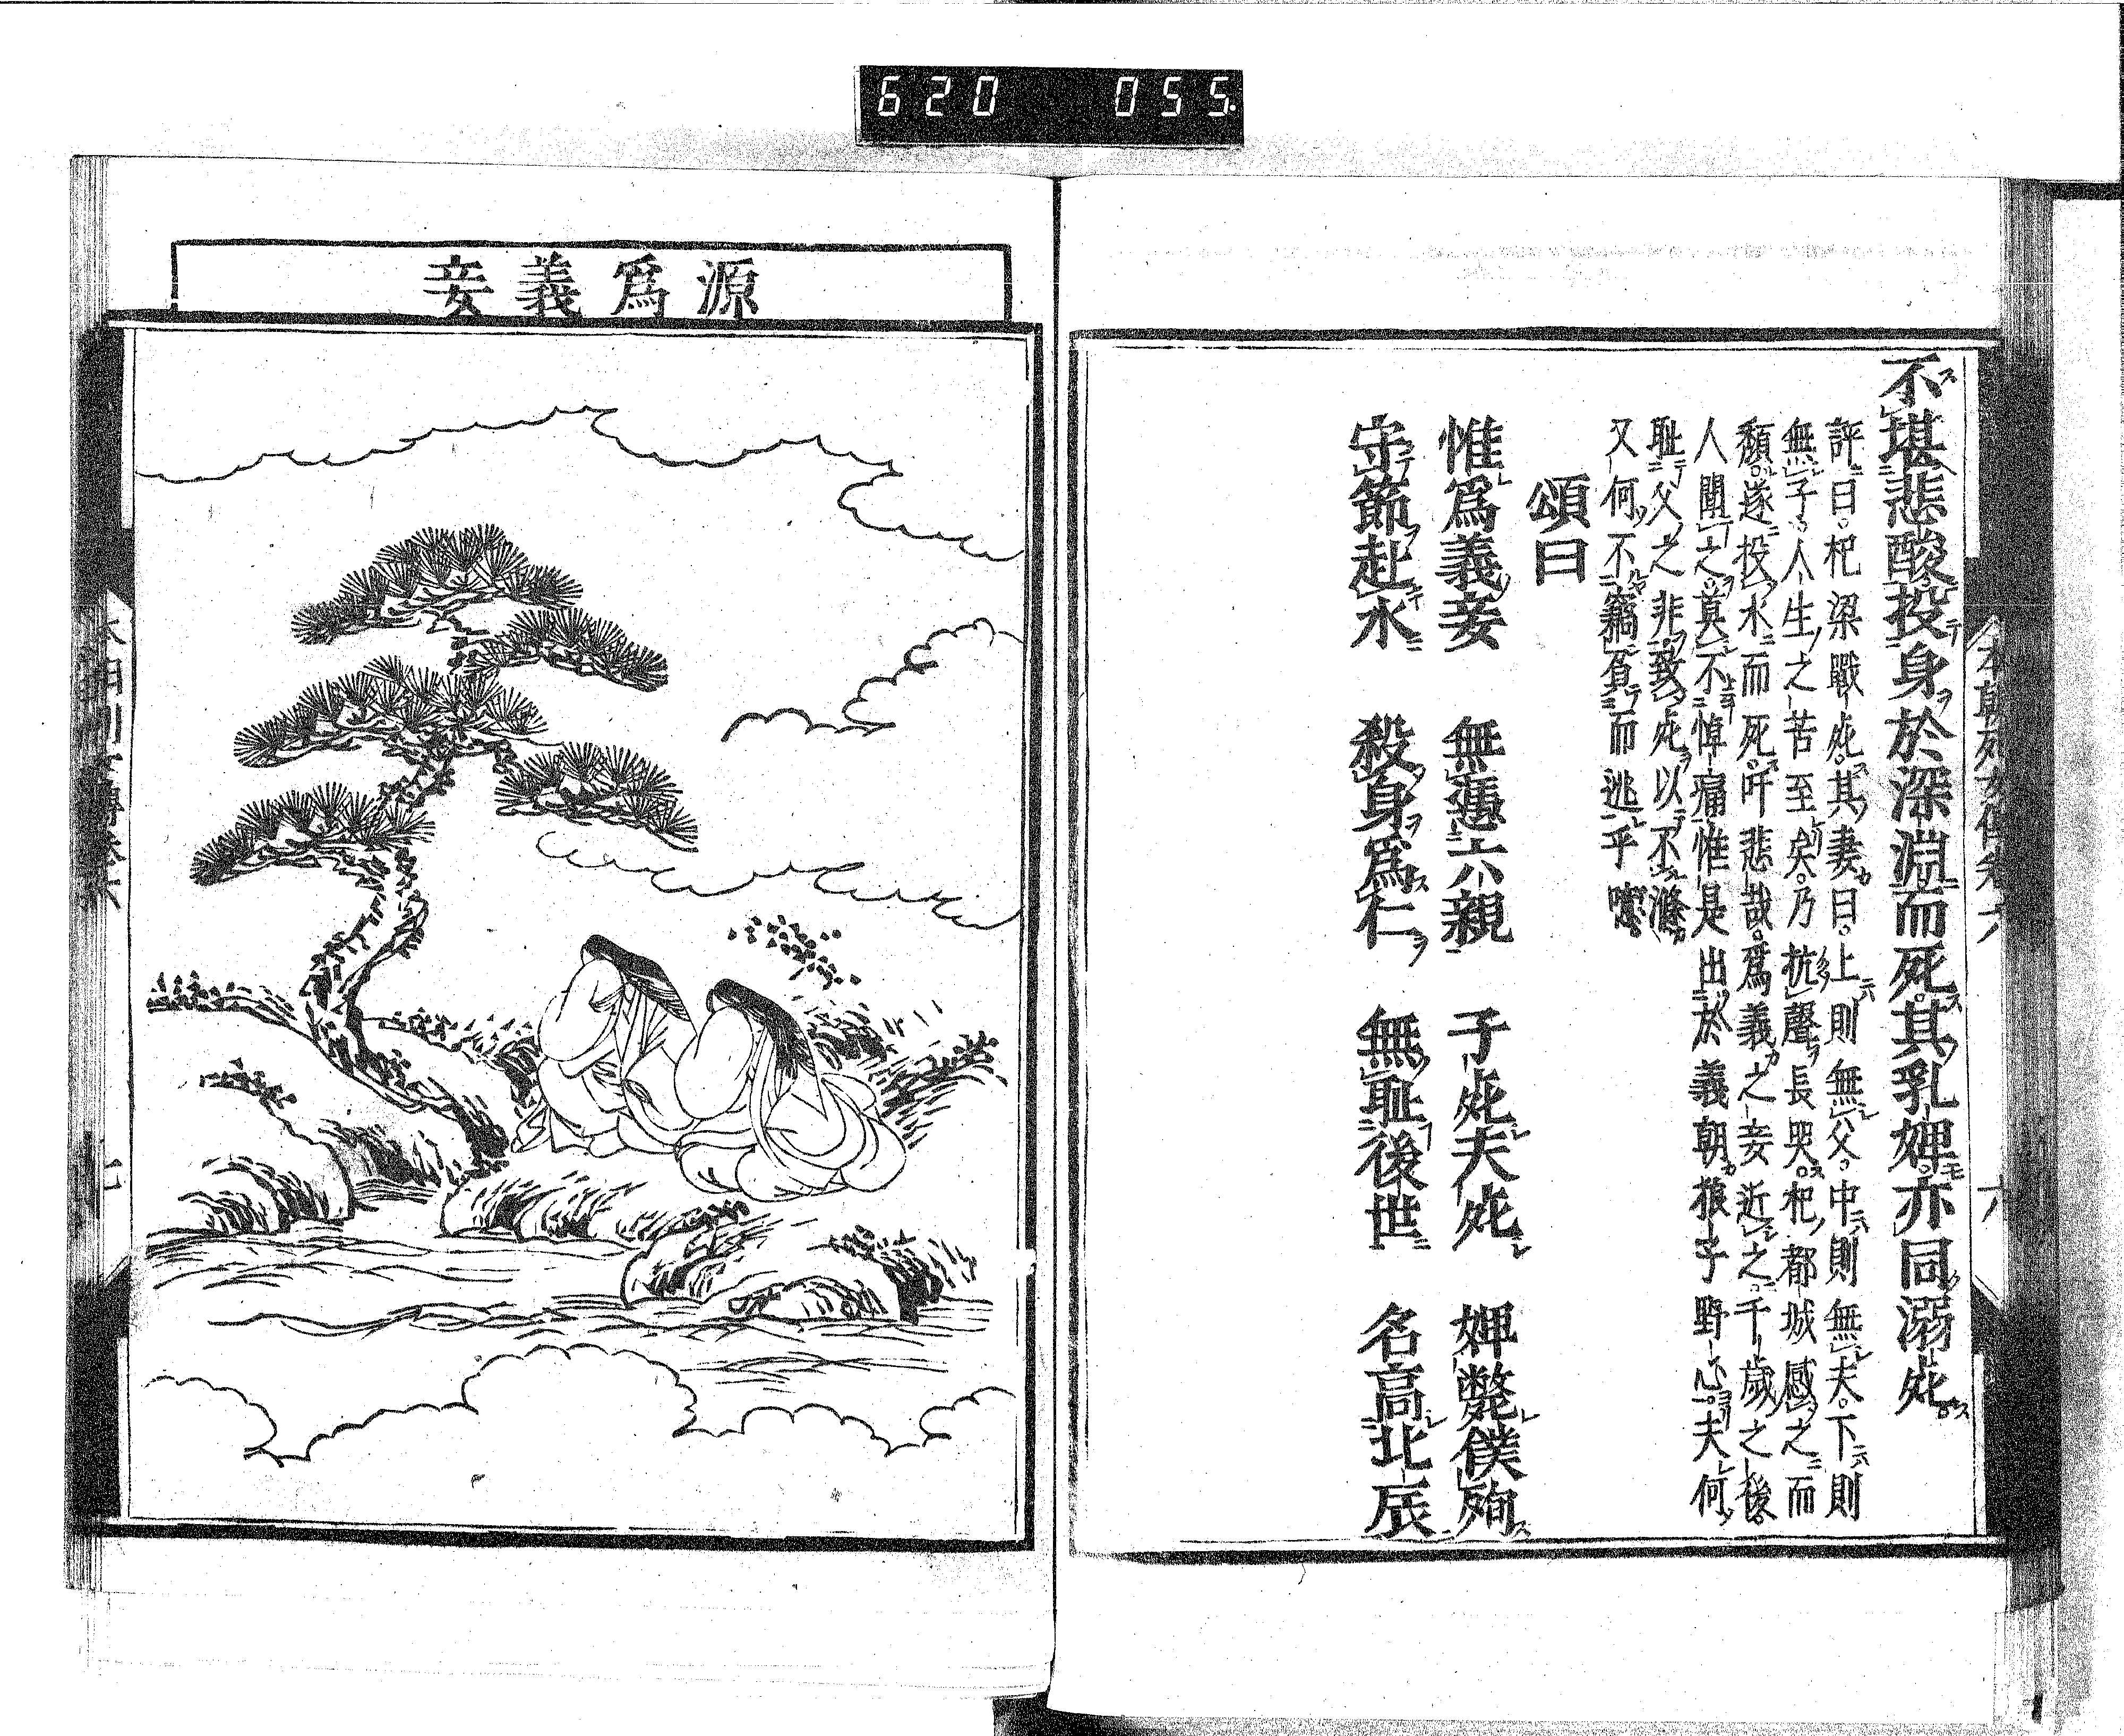 620 055.
不堪悲酸投身於深淵而死其乳婢亦同溺死
評曰杞梁戰死其妻曰上則無父中則無夫下則
無子人生之苦至矣乃抗聲長哭杞都城感之而
頽遂投水而死吁悲哉爲義之妾近之千歲之後
人聞之莫不悼痛惟是出於義朝狼子野心夫何
耻父之非致死以不滌
又何不竊負而逃乎噫
頌曰
惟爲義妾 無憑六親 子死夫死 婢斃僕殉
守節赴水 殺身爲仁 無耻後世 名高北辰
本朝列女傳卷六 六
源爲義妾